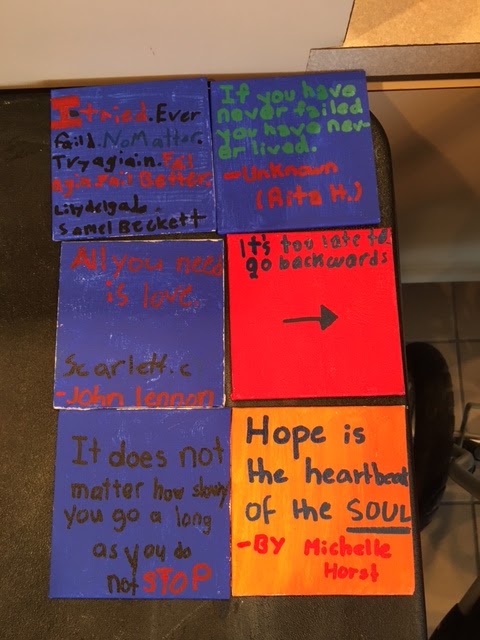 I tried. Ever
faild. No Matter.
Try agiain. Fail
agin. Fail Better.
Lily delgado.
Samel Beckett
If you have
never failed
you have nev-
er lived.
-Unknown
(Rita H.)
All you need
is love
Scarlett.c
-John lennon
It's too late to
go backwards
It does not
matter how slowly
you go a long
as you do
not STOP
Hope is
the heartbeat
of the SOUL
-BY Michelle
Horst